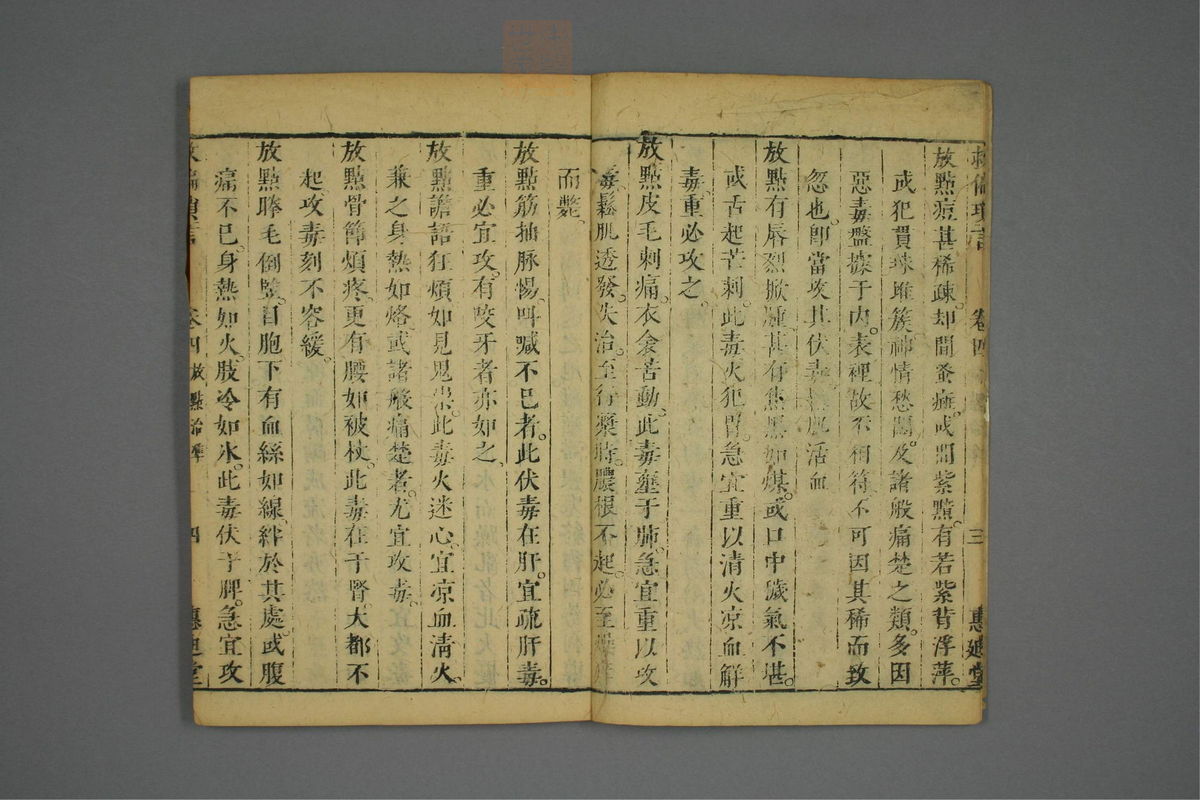 救偏瑣言 卷四 三 惠迪堂
放點痘甚稀疎。却間蚤疵。或間紫點。有若紫背浮萍。
或犯貫珠堆簇。神情愁悶。及諸般痛楚之類。多因
惡毒盤據于内。表裡故不相符。不可因其稀而致
忽也。卽當攻其伏毒。鬆肌活血
放點有唇烈掀腫。甚有焦黑如煤。或口中穢氣不堪。
或舌起芒刺。此毒火犯胃。急宜重以清火凉血解
毒重必攻之。
放點皮毛刺痛。衣衾苦動。此毒壅于肺。急宜重以攻
毒鬆肌透發。失治。至行漿時。膿根不起。必至
而斃。
放點筋抽脉惕。叫喊不已者。此伏毒在肝。宜疏肝毒。
重必宜攻。有咬牙者亦如之。
放點譫語狂煩。如見鬼祟。此毒火迷心。宜凉血清火。
兼之身熱如烙。或諸般痛楚者。尤宜攻毒。
放點骨節煩疼。更有腰如被杖。此毒在于腎。大都不
起。攻毒刻不容緩。
放點睫毛倒竪。目胞下有血絲如線。絆於其處。或腹
痛不已。身熱如火。肢冷如氷。此毒伏于脾。急宜攻
救偏瑣言 卷四 放點治準 四 惠迪堂